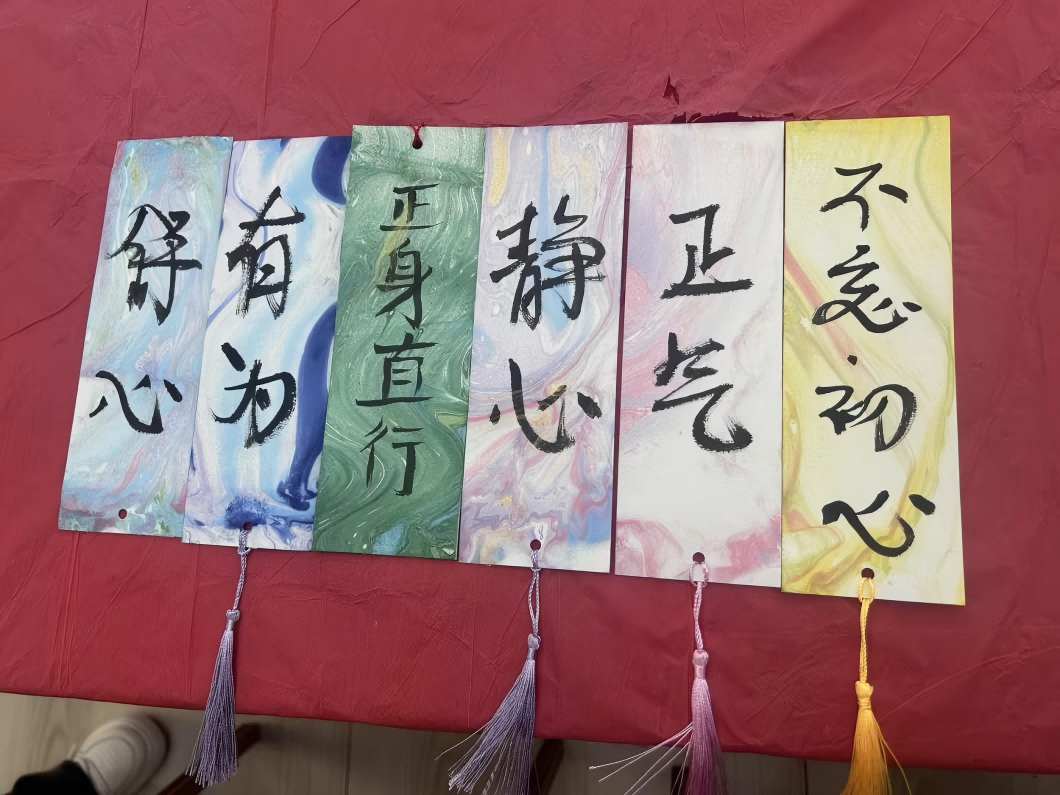 舒心
有为
正身直行
静心
正气
不忘初心